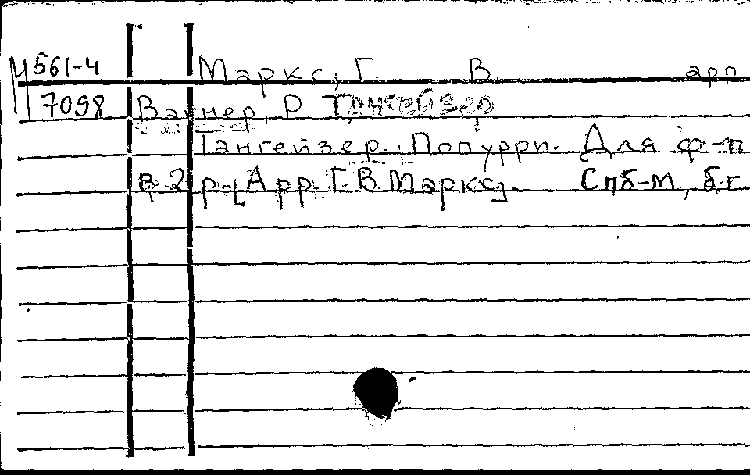 М561-4 Маркс, Г. В. арр.
7098 Вагнер, Р. Тангейзер
Тангейзер. Попурри. Для ф-п
в 2 р. [Арр. Г. В. Маркс]. Спб-М, б.г.